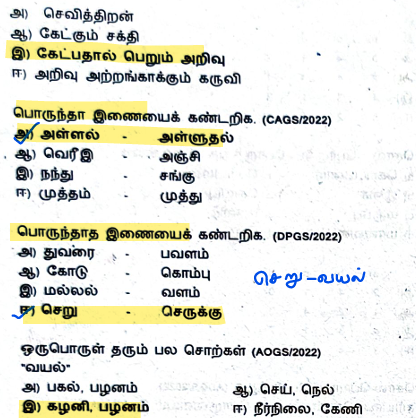 அ) செவித்திறன்
ஆ) கேட்கும் சக்தி
இ) கேட்பதால் பெறும் அறிவு
ஈ) அறிவு அற்றங்காக்கும் கருவி
பொருந்தா இணையைக் கண்டறிக. (CAGS/2022)
அ) அள்ளல் - அள்ளுதல்
ஆ) வெரீஇ - அஞ்சி
இ) நந்து - சங்கு
ஈ) முத்தம் - முத்து
பொருந்தாத இணையைக் கண்டறிக. (DPGS/2022)
அ) துவரை - பவளம்
ஆ) கோடு - கொம்பு
செறு - வயல்
இ) மல்லல் - வளம்
ஈ) செறு - செருக்கு
ஒருபொருள் தரும் பல சொற்கள் (AOGS/2022)
"வயல்"
அ) பகல், பழனம் ஆ) செய், நெல்
இ) கழனி, பழனம் ஈ) நீர்நிலை, கேணி